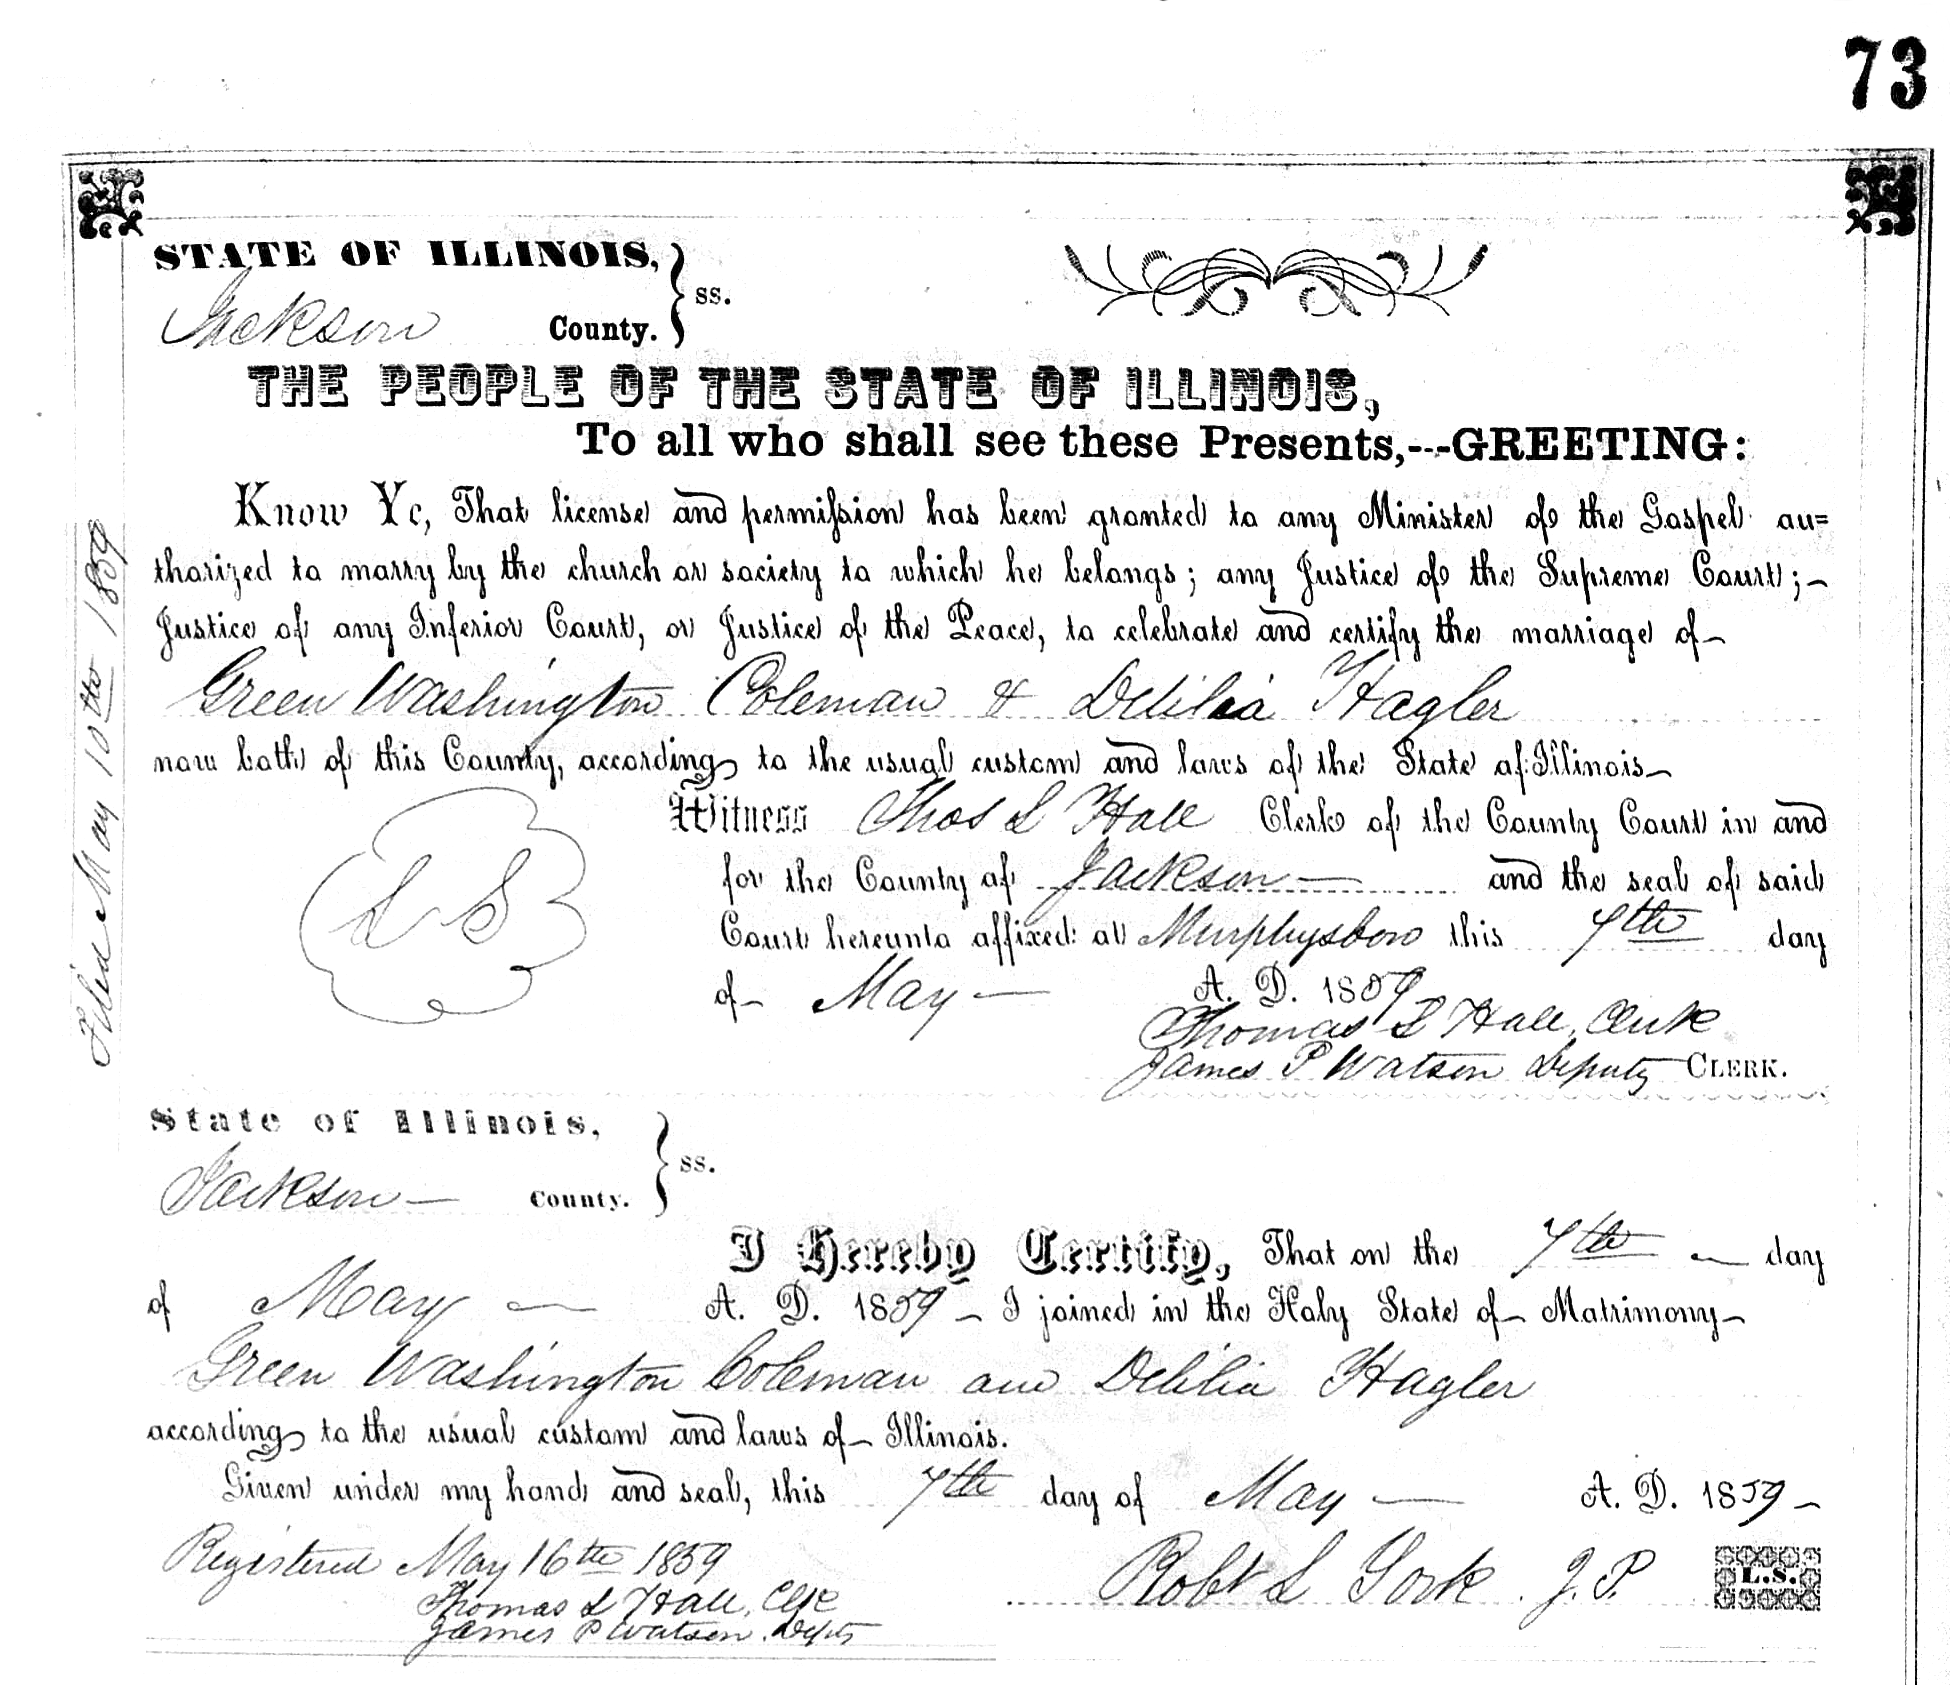 73
STATE OF ILLINOIS,
Jackson County. } ss.
THE PEOPLE OF THE STATE OF ILLINOIS,
To all who shall see these Presents,---GREETING:
Know Ye, That license and permission has been granted to any Minister of the Gospel au=
thorized to marry by the church or society to which he belongs; any Justice of the Supreme Court;—
Justice of any Inferior Court, or Justice of the Peace, to celebrate and certify the marriage of—
Green Washington Coleman & Delilia Hagler
now both of this County, according to the usual custom and laws of the State of Illinois—
Witness Thos L Hall Clerk of the County Court in and
for the County of Jackson — and the seal of said
Court hereunto affixed at Murphysboro this 7th day
of — May — A. D. 1859
L S
Thomas L Hall, Clerk
James P Watson Deputy CLERK.
Filed May 10th 1859
State of Illinois,
Jackson — County. } ss.
I Hereby Certify, That on the 7th — day
of May — A. D. 1859 — I joined in the Holy State of — Matrimony —
Green Washington Coleman and Delilia Hagler
according to the usual custom and laws of — Illinois.
Given under my hand and seal, this 7th day of May — A. D. 1859 —
Registered May 16th 1859
Robt L J. P. L.S.
Thomas L Hall, Clk
James P Watson, Depty